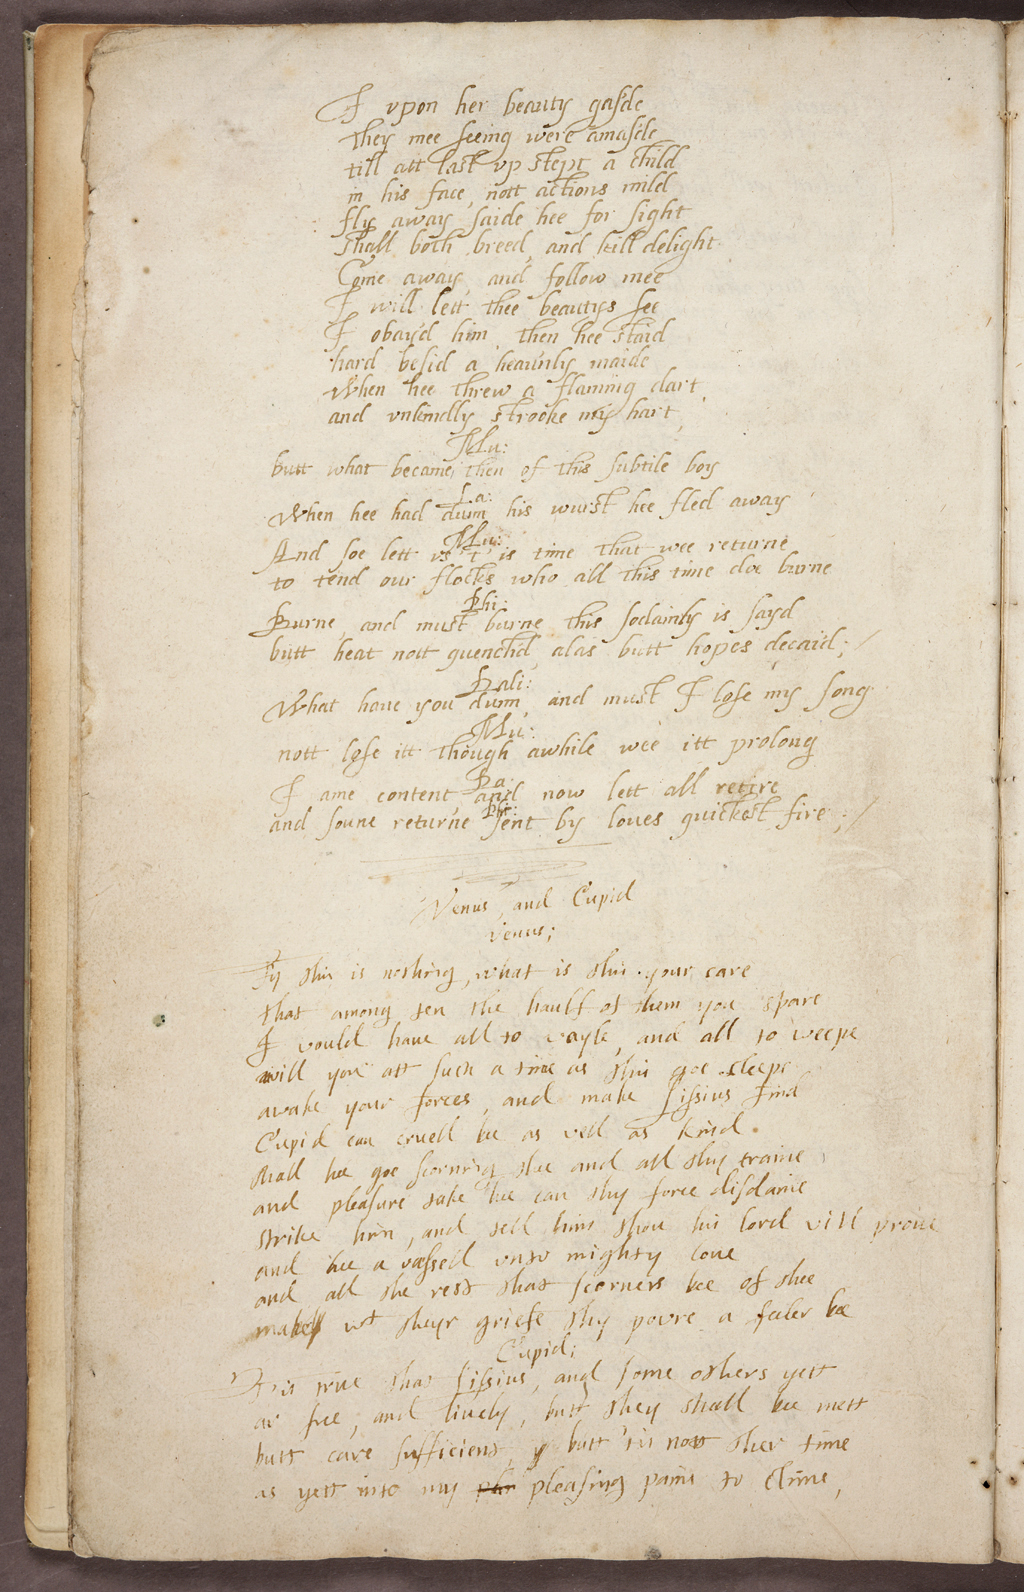 I vpon her beauty gasde
they mee seeing were amasde
till att last vp stept a child
in his face, nott actions mild
fly away saide hee for sight
shall both breed, and kill delight
Come away, and follow mee
I will lett thee beautys see
I obay'd him, then hee staid
hard besid a heaunly maide
When hee threw a flaming dart
and vnkindly strooke my hart,
Mu:
butt what became then of this subtile boy
La:
When hee had dunn his wurst hee fled away
Mu:
And soe lett us t'is time that wee returne
to tend our flocks who all this time doe burne
Phi:
Burne, and must burne this sodainly is sayd
butt heat nott quenchd, alas butt hopes decaid;
Dali:
What haue you dunn, and must I lose my song
Mu:
nott lose itt though awhile wee itt prolong
Da:
I ame content, and now lett all retire
Phi:
and soune returne sent by loues quickest fire;
Venus, and Cupid
Venus;
Fy this is nothing, what is this your care
that among ten the haulf of them you spare
I would haue all to wayle, and all to weepe
will you att such a time as this goe sleepe
awake your forces, and make Lissius find
Cupid can cruell bee as well as kind.
shall hee goe scorning thee and all thy traine
and pleasure take hee can thy force disdaine
strike him, and tell him thou his lord will proue
and hee a vassell vnto mighty loue
and all the rest that scorners bee of thee
make wt theyr griefe thy powre a feeler bee
Cupid;
T'is true that Lissius, and some others yett
ar free, and lively, butt they shall bee mett
butt care sufficient, y butt 'tis nott ther time
as yett into my pleasing pains to clime,